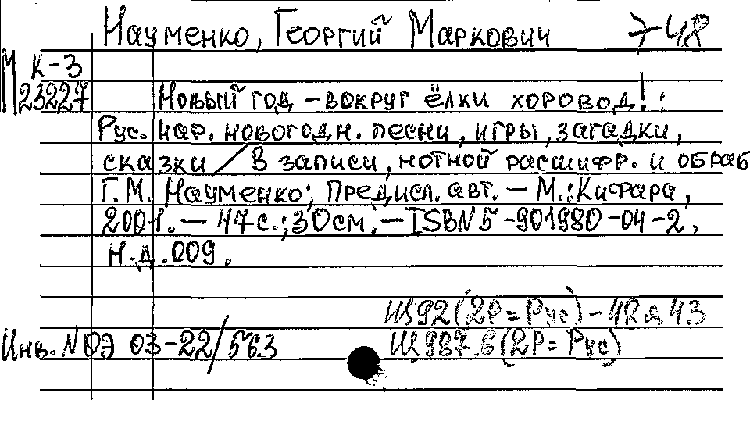 Науменко, Георгий Маркович 7-48
М К-3
23227
Новый год – вокруг ёлки хоровод! :
Рус. нар. новогодн. песни, игры, загадки,
сказки / В записи, нотной расшифр. и обраб
Г.М. Науменко; Предисл. авт. – М.: Кифара,
2001. – 47 с.; 30 см. – ISBN 5-901980-04-2,
Н.д. 009.
Щ92(2Р=Рус)-42я43
Инв. №ОЭ 03-22/563 Щ987.6(2Р=Рус)